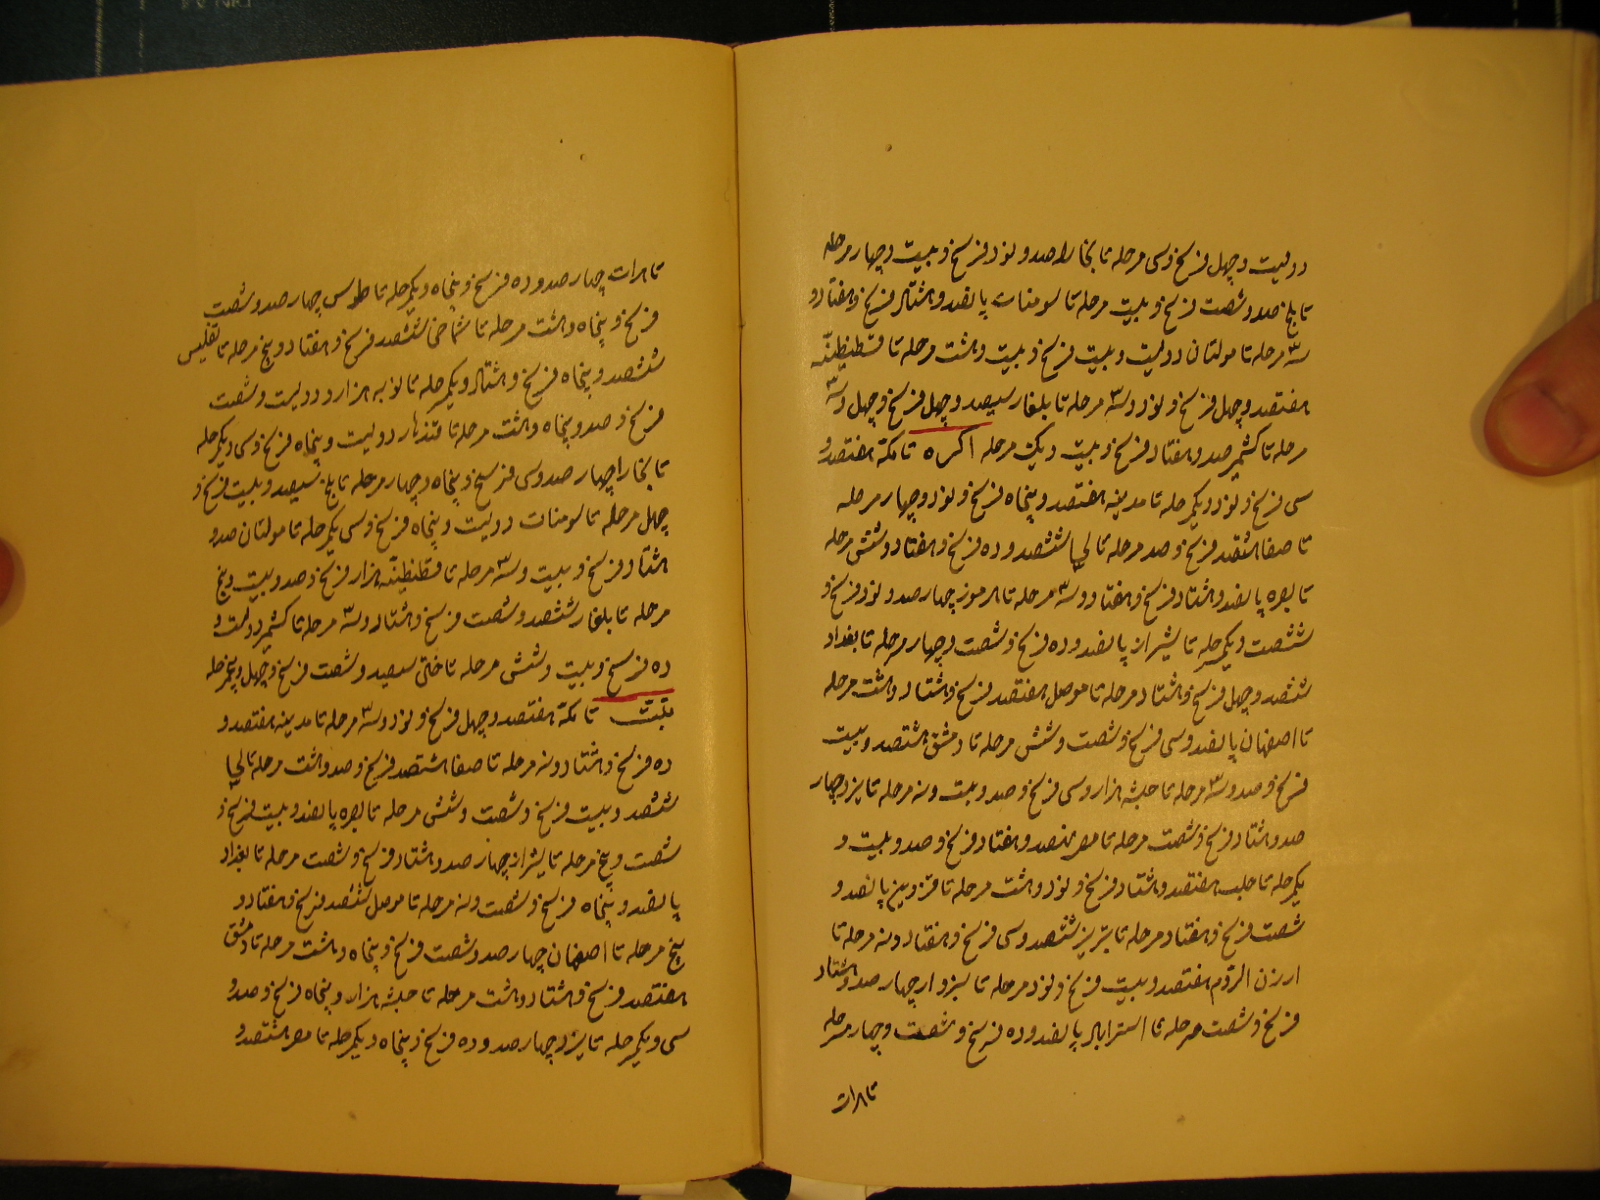 دویست و چهل فرسخ و سی مرحله تا بخارا صد و نود فرسخ و بیست و چهار مرحله
تا بلخ صد و شصت فرسخ و بیست مرحله تا سومنات پانصد و هشتاد فرسخ و هفتاد و
سه مرحله تا مولتان دویست و بیست فرسخ و بیست و هشت مرحله تا قسطنطینیه
هفتصد و چهل فرسخ و نود و سه مرحله تا بلغار سیصد و چهل فرسخ و چهل و سه
مرحله تا کشمیر صد و هفتاد فرسخ و بیست و یک مرحله اکره تا مکه هفتصد و
سی فرسخ و نود و یکمرحله تا مدینه هفتصد و پنجاه فرسخ و نود و چهار مرحله
تا صفا هشتصد فرسخ و صد مرحله تا ششصد و ده فرسخ و هفتاد و شش مرحله
تا بصره پانصد و هشتاد فرسخ و هفتاد و سه مرحله تا هرموز چهار صد و نود فرسخ و
شصت و یکمرحله تا شیراز پانصد و ده فرسخ و شصت و چهار مرحله تا بغداد
ششصد و چهل فرسخ و هشتاد مرحله تا موصل هفتصد فرسخ و هشتاد و هشت مرحله
تا اصفهان پانصد و سی فرسخ و شصت و شش مرحله تا دمشق هشتصد و بیست
فرسخ و صد و سه مرحله تا حبشه هزار و سی فرسخ و صد و بیست و نه مرحله تا یزد چهار
صد و هشتاد فرسخ و شصت مرحله تا مصر نهصد و هفتاد فرسخ و صد و بیست و
یکمرحله تا حلب هفتصد و هشتاد فرسخ و نود و هشت مرحله تا قزوین پانصد و
شصت فرسخ و هفتاد مرحله تا تبریز ششصد و سی فرسخ و هفتاد و نه مرحله تا
ارزن الروم هفتصد و بیست فرسخ و نود مرحله تا سبزوار چهار صد و هشتاد
فرسخ و شصت مرحله تا استراباد پانصد و ده فرسخ و شصت و چهار مرحله
تا هرات
تا هرات چهار صد و ده فرسخ و پنجاه و یکمرحله تا طوس چهار صد و شصت
فرسخ و پنجاه و هشت مرحله تا شماخی ششصد فرسخ و هفتاد و پنج مرحله تا تفلیس
ششصد و پنجاه فرسخ و هشتاد و یکمرحله تا نوبه هزار و دویست و شصت
فرسخ و صد و پنجاه و هشت مرحله تا قندهار دویست و پنجاه فرسخ و سی و یکمرحله
تا بخارا چهار صد و سی فرسخ و پنجاه و چهار مرحله تا بلخ سیصد و بیست فرسخ و
چهل مرحله تا سومنات دویست و پنجاه فرسخ و سی یکمرحله تا مولتان صد و
هشتاد فرسخ و بیست و سه مرحله تا قسطنطینیه هزار فرسخ و صد و بیست و پنج
مرحله تا بلغار ششصد و شصت فرسخ و هشتاد و سه مرحله تا کشمیر دویست و
ده فرسخ و بیست و شش مرحله تا ختن سیصد و شصت فرسخ و چهل و پنجمرحله
تبت تا مکه هفتصد و چهل فرسخ و نود و سه مرحله تا مدینه هفتصد و
ده فرسخ و هشتاد و نه مرحله تا صفا هشتصد فرسخ و صد و هشت مرحله تا
ششصد و بیست فرسخ و شصت و شش مرحله تا بصره پانصد و بیست فرسخ و
شصت و پنج مرحله تا شیراز چهار صد و هشتاد فرسخ و شصت مرحله تا بغداد
پانصد و پنجاه فرسخ و شصت و نه مرحله تا موصل ششصد فرسخ و هفتاد و
پنج مرحله تا اصفهان چهار صد و شصت فرسخ و پنجاه و هشت مرحله تا دمشق
هفتصد فرسخ و هشتاد و هشت مرحله تا حبشه هزار و پنجاه فرسخ و صد و
سی و یکمرحله تا یزد چهار صد و ده فرسخ و پنجاه و یکمرحله تا مصر هشتصد و